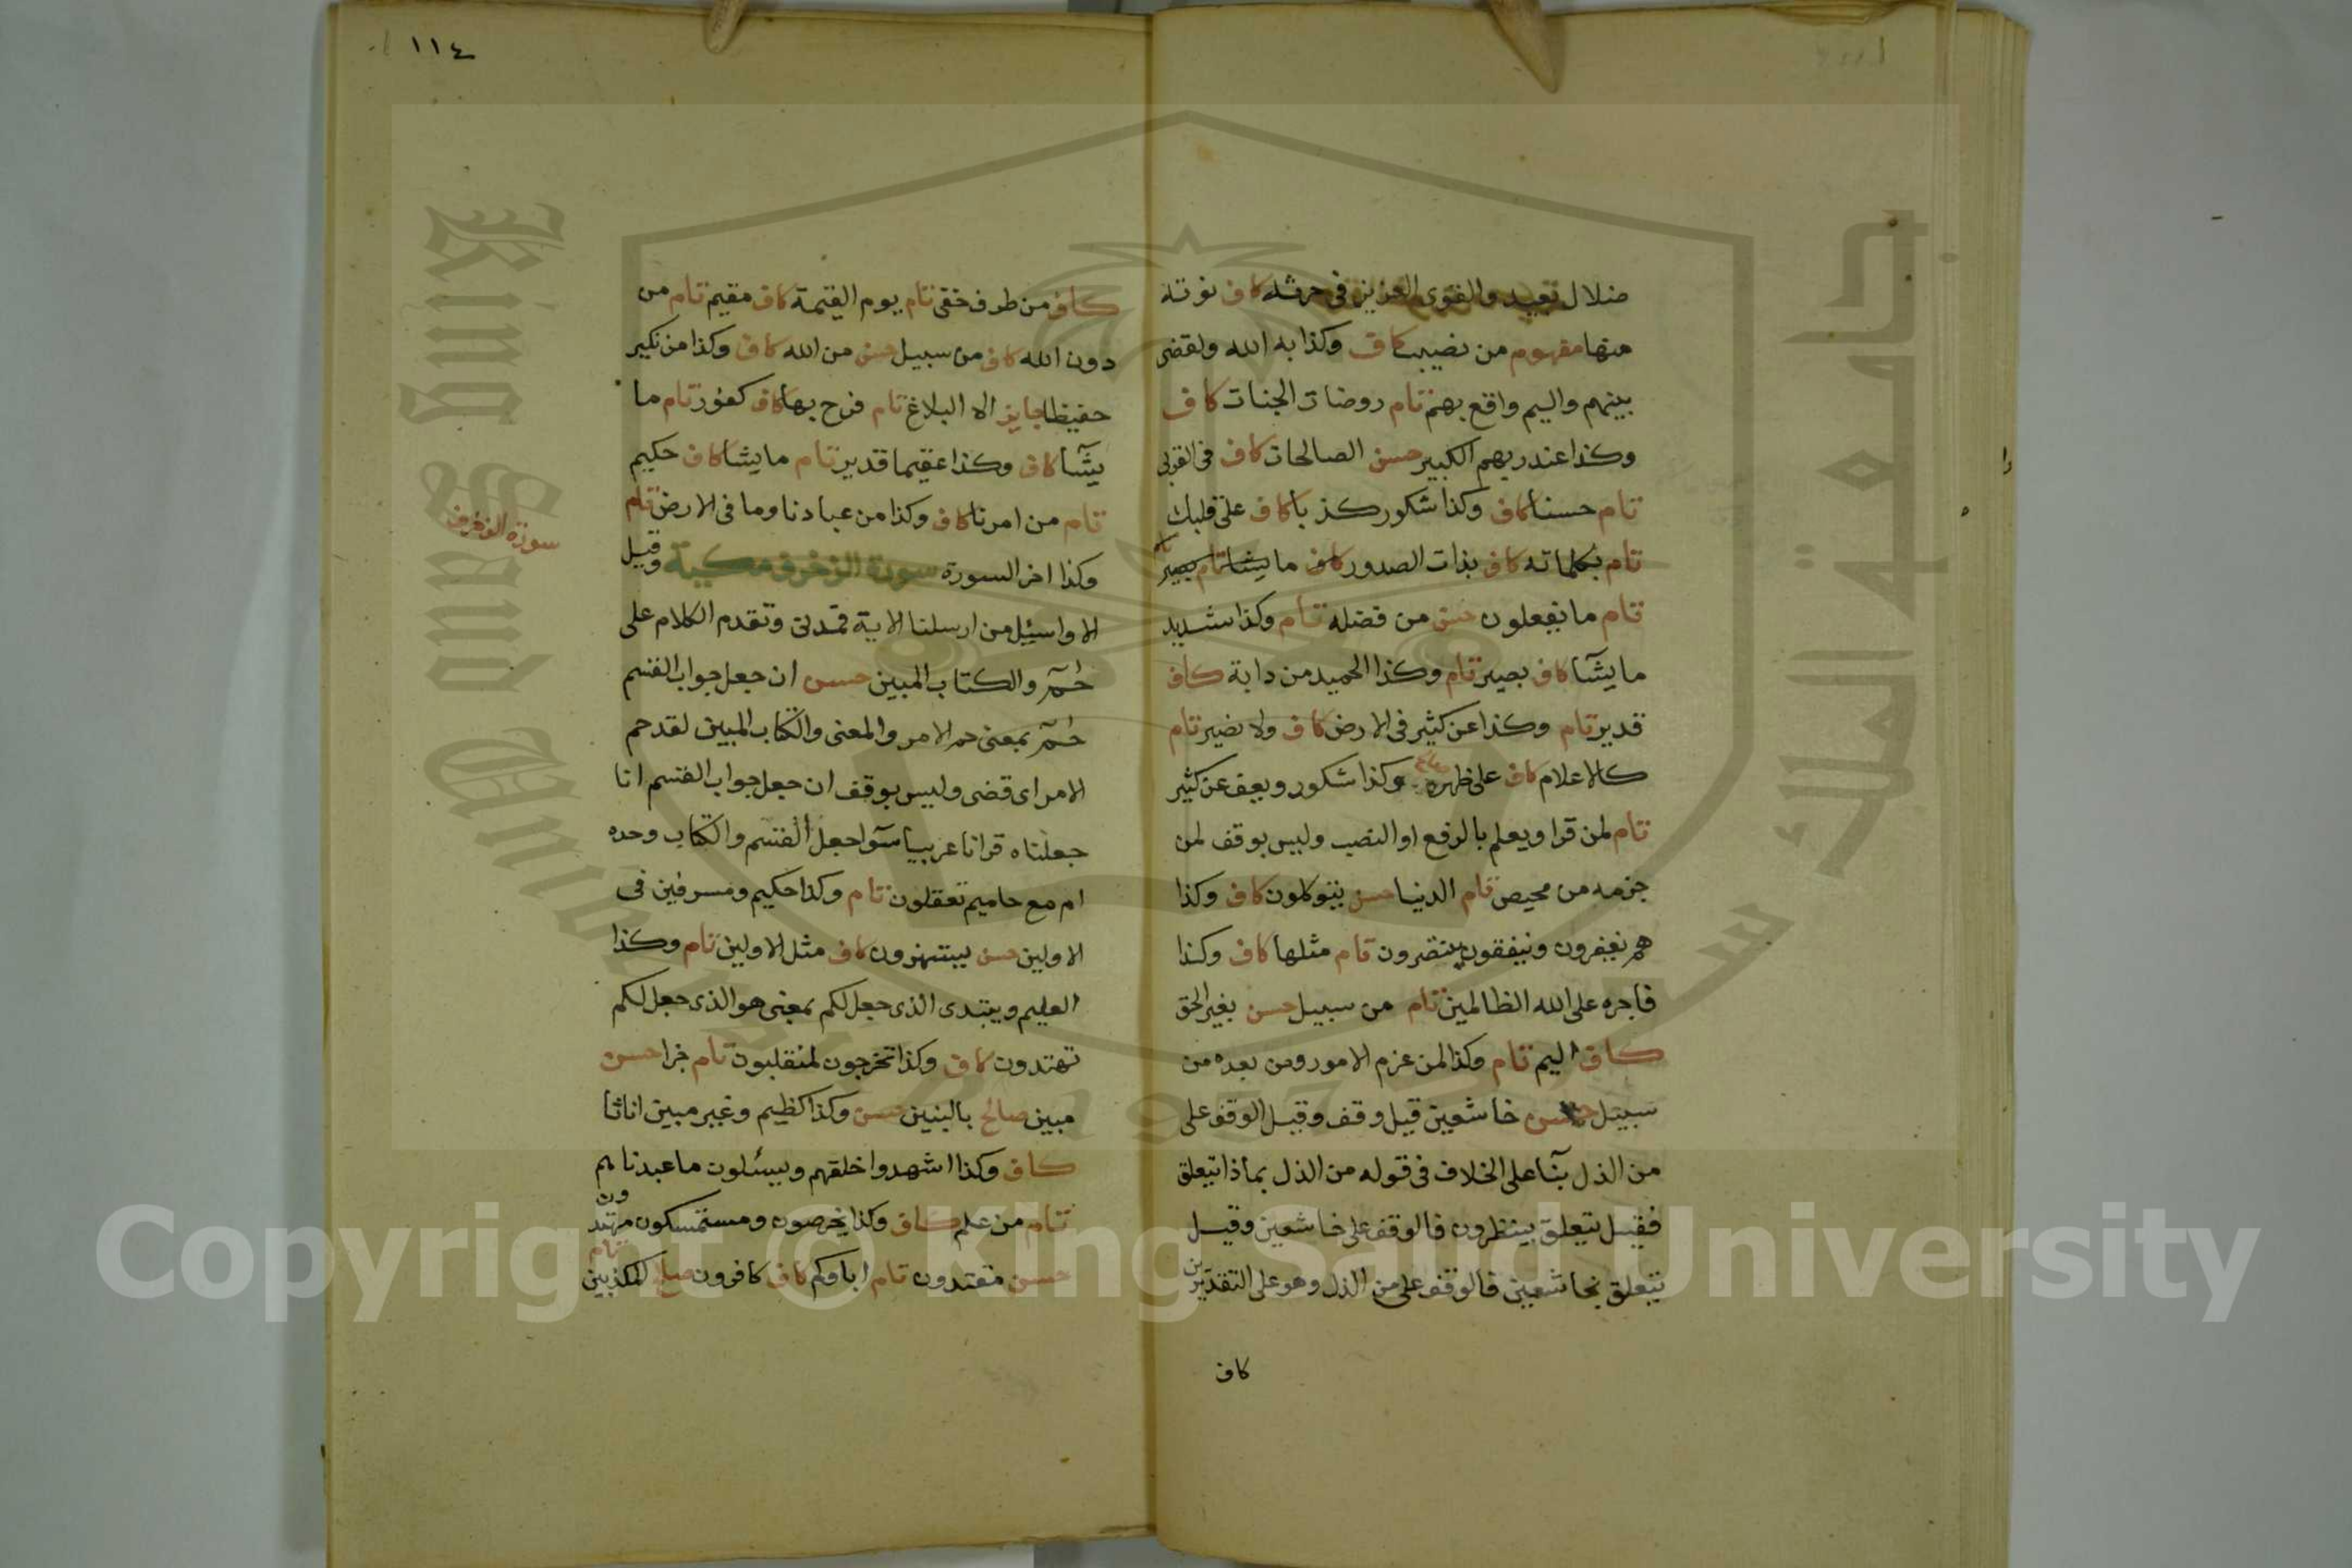 ضلال بعيد والقوى العزيز فى حرثه كاف نوته
منها مفهوم من نصيب كاف وكذا به الله ولقضى
بينهم واليم واقع بهم تام روضات الجنات كاف
وكذا عند ربهم الكبير حسن الصالحات كاف فى القربى
تام حسنا كاف وكذا شكور كذبا كاف على قلبك
تام بكلماته كاف بذات الصدور كاف ما يشا تام بصير
تام ما تفعلون حسن من فضله تام وكذا شديد
ما يشآ كاف بصير تام وكذا الحميد من دابة كاف
قدير تام وكذا عن كثير فى الارض كاف ولا نصير تام
كالاعلام كاف على ظهره وكذا شكور ويعف عن كثير
تام لمن قرا ويعلم بالرفع او النصب وليس بوقف لمن
جزمه من محيص تام الدنيا حسن يتوكلون كاف وكذا
هم يغفرون وينفقون ينتصرون تام مثلها كاف وكذا
فاجره على الله الظالمين تام من سبيل حسن بغير الحق
كاف اليم تام وكذا لمن عزم الامور ومن بعده من
سبيل حسن خاشعين قيل وقف وقيل الوقف على
من الذل بنآ على الخلاف فى قوله من الذل بماذا يتعلق
فقيل يتعلق بينظرون فالوقف على خاشعين وقيل
يتعلق بخاشعين فالوقف على من الذل وهو على التقديرين
كاف
١١٤
كاف من طرف خفى تام يوم القيمة كاف مقيم تام من
دون الله كاف من سبيل حسن من الله كاف وكذا من نكير
حفيظا جايز الا البلاغ تام فرح بها كاف كفور تام ما
يشآ كاف وكذا عقيما قدير تام ما يشا كاف حكيم
تام من امرنا كاف وكذا من عبادنا وما فى الارض تام
وكذا اخر السورة سورة الزخرف مكية وقيل
الا واسئل من ارسلنا الاية فمدنى وتقدم الكلام على
حم والكتاب المبين حسن ان جعل جواب القسم
حم بمعنى حم الامر والمعنى والكتاب المبين لقد حم
الامر اى قضى وليس بوقف ان جعل جواب القسم انا
جعلناه قرانا عربيا سوا جعل القسم والكتاب وحده
ام مع حاميم تعقلون تام وكذا حكيم ومسرفين فى
الاولين حسن يستهزون كاف مثل الاولين تام وكذا
العليم ويبتدى الذى جعل لكم بمعنى هو الذى جعل لكم
تهتدون كاف وكذا تخرجون لمنقلبون تام جزا حسن
مبين صالح بالبنين حسن وكذا كظيم وغير مبين اناثا
كاف وكذا اشهدوا خلقهم ويسئلون ما عبدناهم
تام من علم كاف وكذا يخرصون ومستمسكون مهتدون
حسن مقتدون تام اباوكم كاف كافرون صالح المكذبين تام
سورة الزخرف
King Saud University
جامعة الملك سعود
1957
Copyright © King Saud University